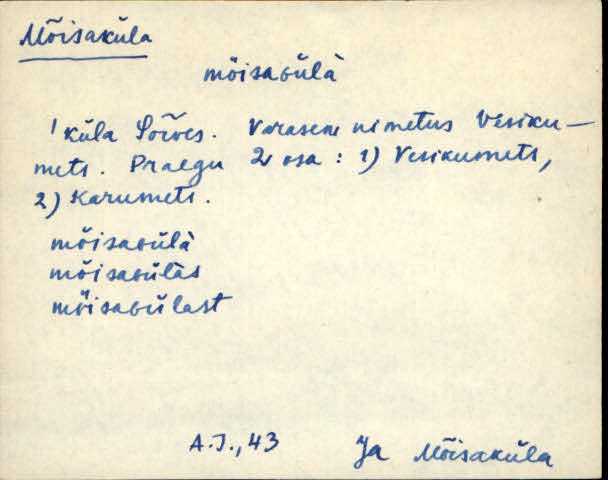 Mõisaküla
mõisaɢülà
'küla Sõrves. Varasem nimetus Vesiku—
mets. Praegu 2 osa: 1) Vesikumets,
2) Karumets.
mõisaɢülà
mõisaɢülàs
mõisaɢülast
A.J., 43 Ja Mõisaküla